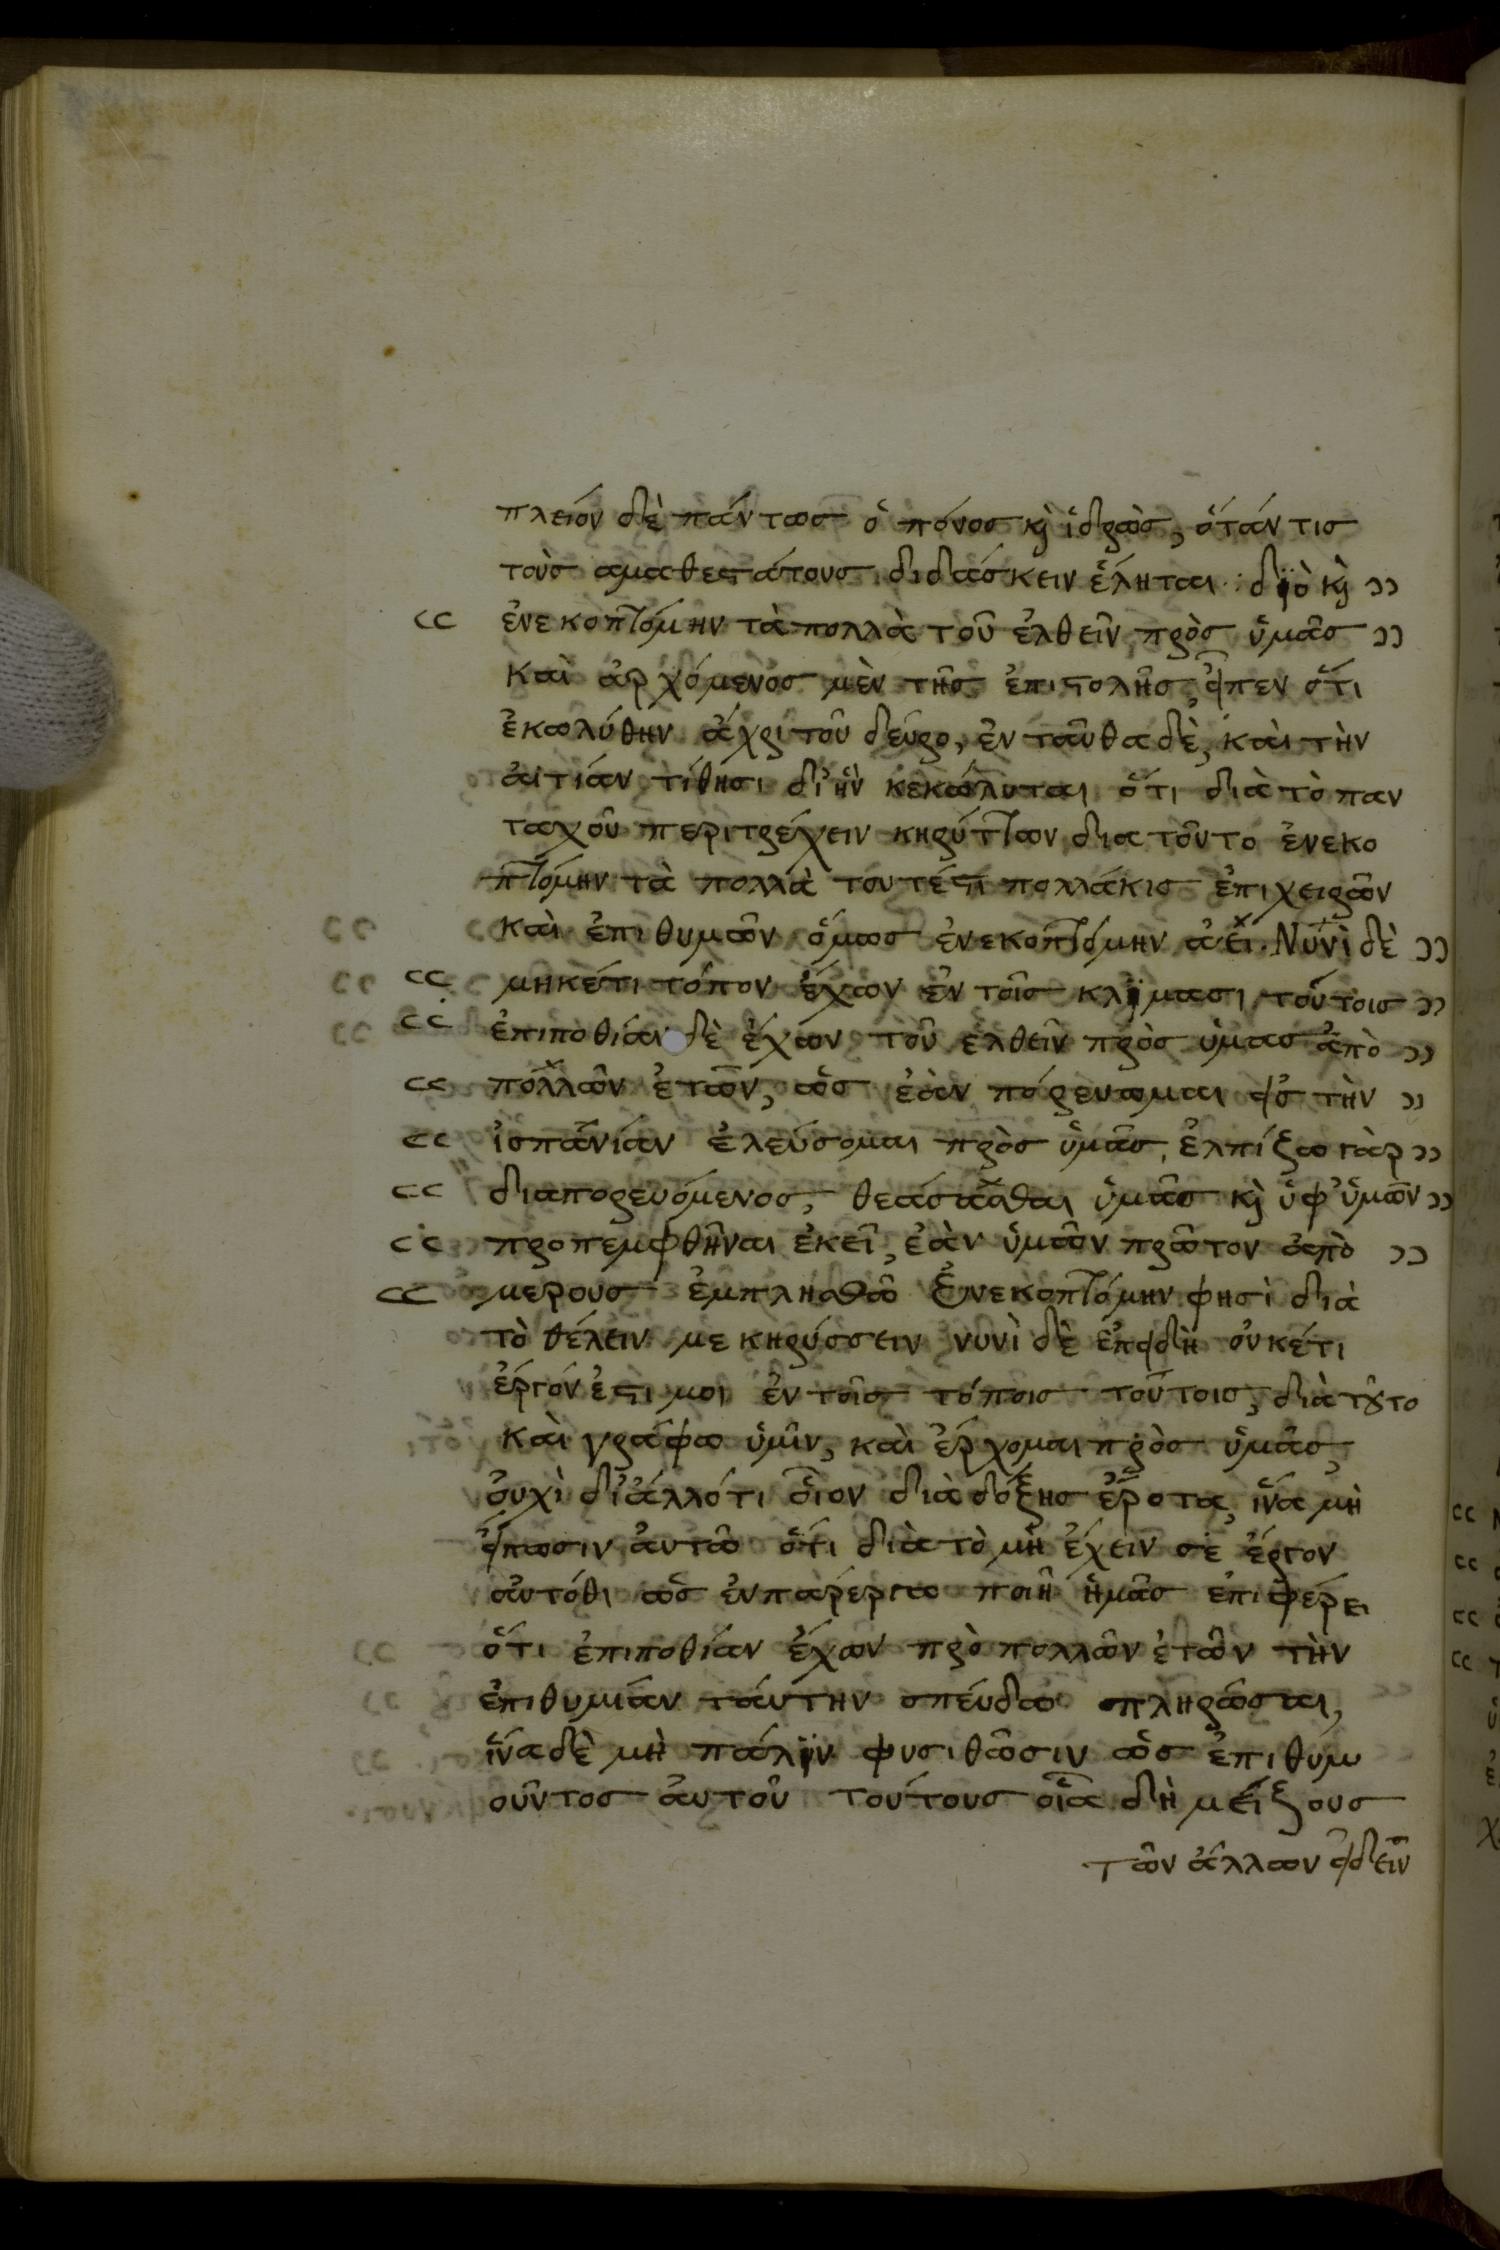 πλειόν δὲ πάντως ὁ πόνος κὶ ἱδρὼς, ὁτάν τις
τοὺς αμαθεστάτους διδάσκειν ἕληται· διὸ κὶ ››
‹‹ ἐνεκοπτόμην τὰ πολλὰ τοῦ ἐλθεῖν πρὸς ὑμᾶς ››
καὶ ἀρχόμενος μὲν τῆς ἐπιστολῆς, εἶπεν ὅτι
ἐκωλύθην ἄχρι τοῦ δεύρο, ἐν ταῦθα δὲ, καὶ τὴν
ἀιτίαν τίθησι δι' ἣν κεκώλυται ὅτι διὰ τὸ παν
ταχοῦ περιτρέχειν κηρύττων δια τοῦτο ἐνεκο
πτόμην τὰ πολλὰ τουτέστι πολλάκις ἐπιχειρῶν
καὶ ἐπιθυμῶν ὅμως ἐνεκοπτόμην ἀεί. Νυνὶ δὲ ››
‹‹ μηκέτι τόπον ἔχων ἐν τοῖς κλίμασι τούτοις ››
‹‹ ἐπιποθίαν δὲ ἔχων τοῦ ἐλθεῖν πρὸς ὑμας ἀπὸ ››
‹‹ πολλῶν ἐτῶν, ὡς ἐὰν πορευωμαι εἰς τὴν ››
‹‹ ἱσπανίαν ἐλεύσομαι πρὸς ὑμᾶς, ἐλπίζω γὰρ ››
‹‹ διαπορευόμενος, θεάσασθαι ὑμᾶς κὶ ὑφ' ὑμῶν ››
‹‹ προπεμφθῆναι ἐκεῖ, ἐὰν ὑμῶν πρῶτον ἀπὸ ››
‹‹ μερους ἐμπλησθῶ Ἐνεκοπτόμην φησὶ διὰ
τὸ θέλειν με κηρύσσειν νυνὶ δὲ ἐπειδὴ οὐκέτι
ἔργόν ἐστι μοι ἐν τοῖς τόποις τούτοις, διὰ τοῦτο
καὶ γράφω ὑμῖν, καὶ ἔρχομαι πρὸς ὑμᾶς,
ὀυχὶ δι' ἀλλότι οἷον διὰ δόξης ἔρωτα, ἵνα μὴ
εἴπωσιν ἀυτῶ ὅτι διὰ τὸ μὴ ἔχειν σέ ἔργον
αὐτόθι ὡς ἐν παρέργω ποιῆ ἡμᾶς ἐπιφέρει
ὅτι ἐπιποθίαν ἔχων πρὸ πολλῶν ἐτῶν τὴν
ἐπιθυμίαν ταύτην σπέυδω πληρῶσαι,
ἵνα δὲ μὴ πάλιν φυσιθῶσιν ὡς ἐπιθυμ
οῦντος ἀυτοῦ τούτους οἷα δὴ μείζους
τῶν ἄλλων εἰδεῖν